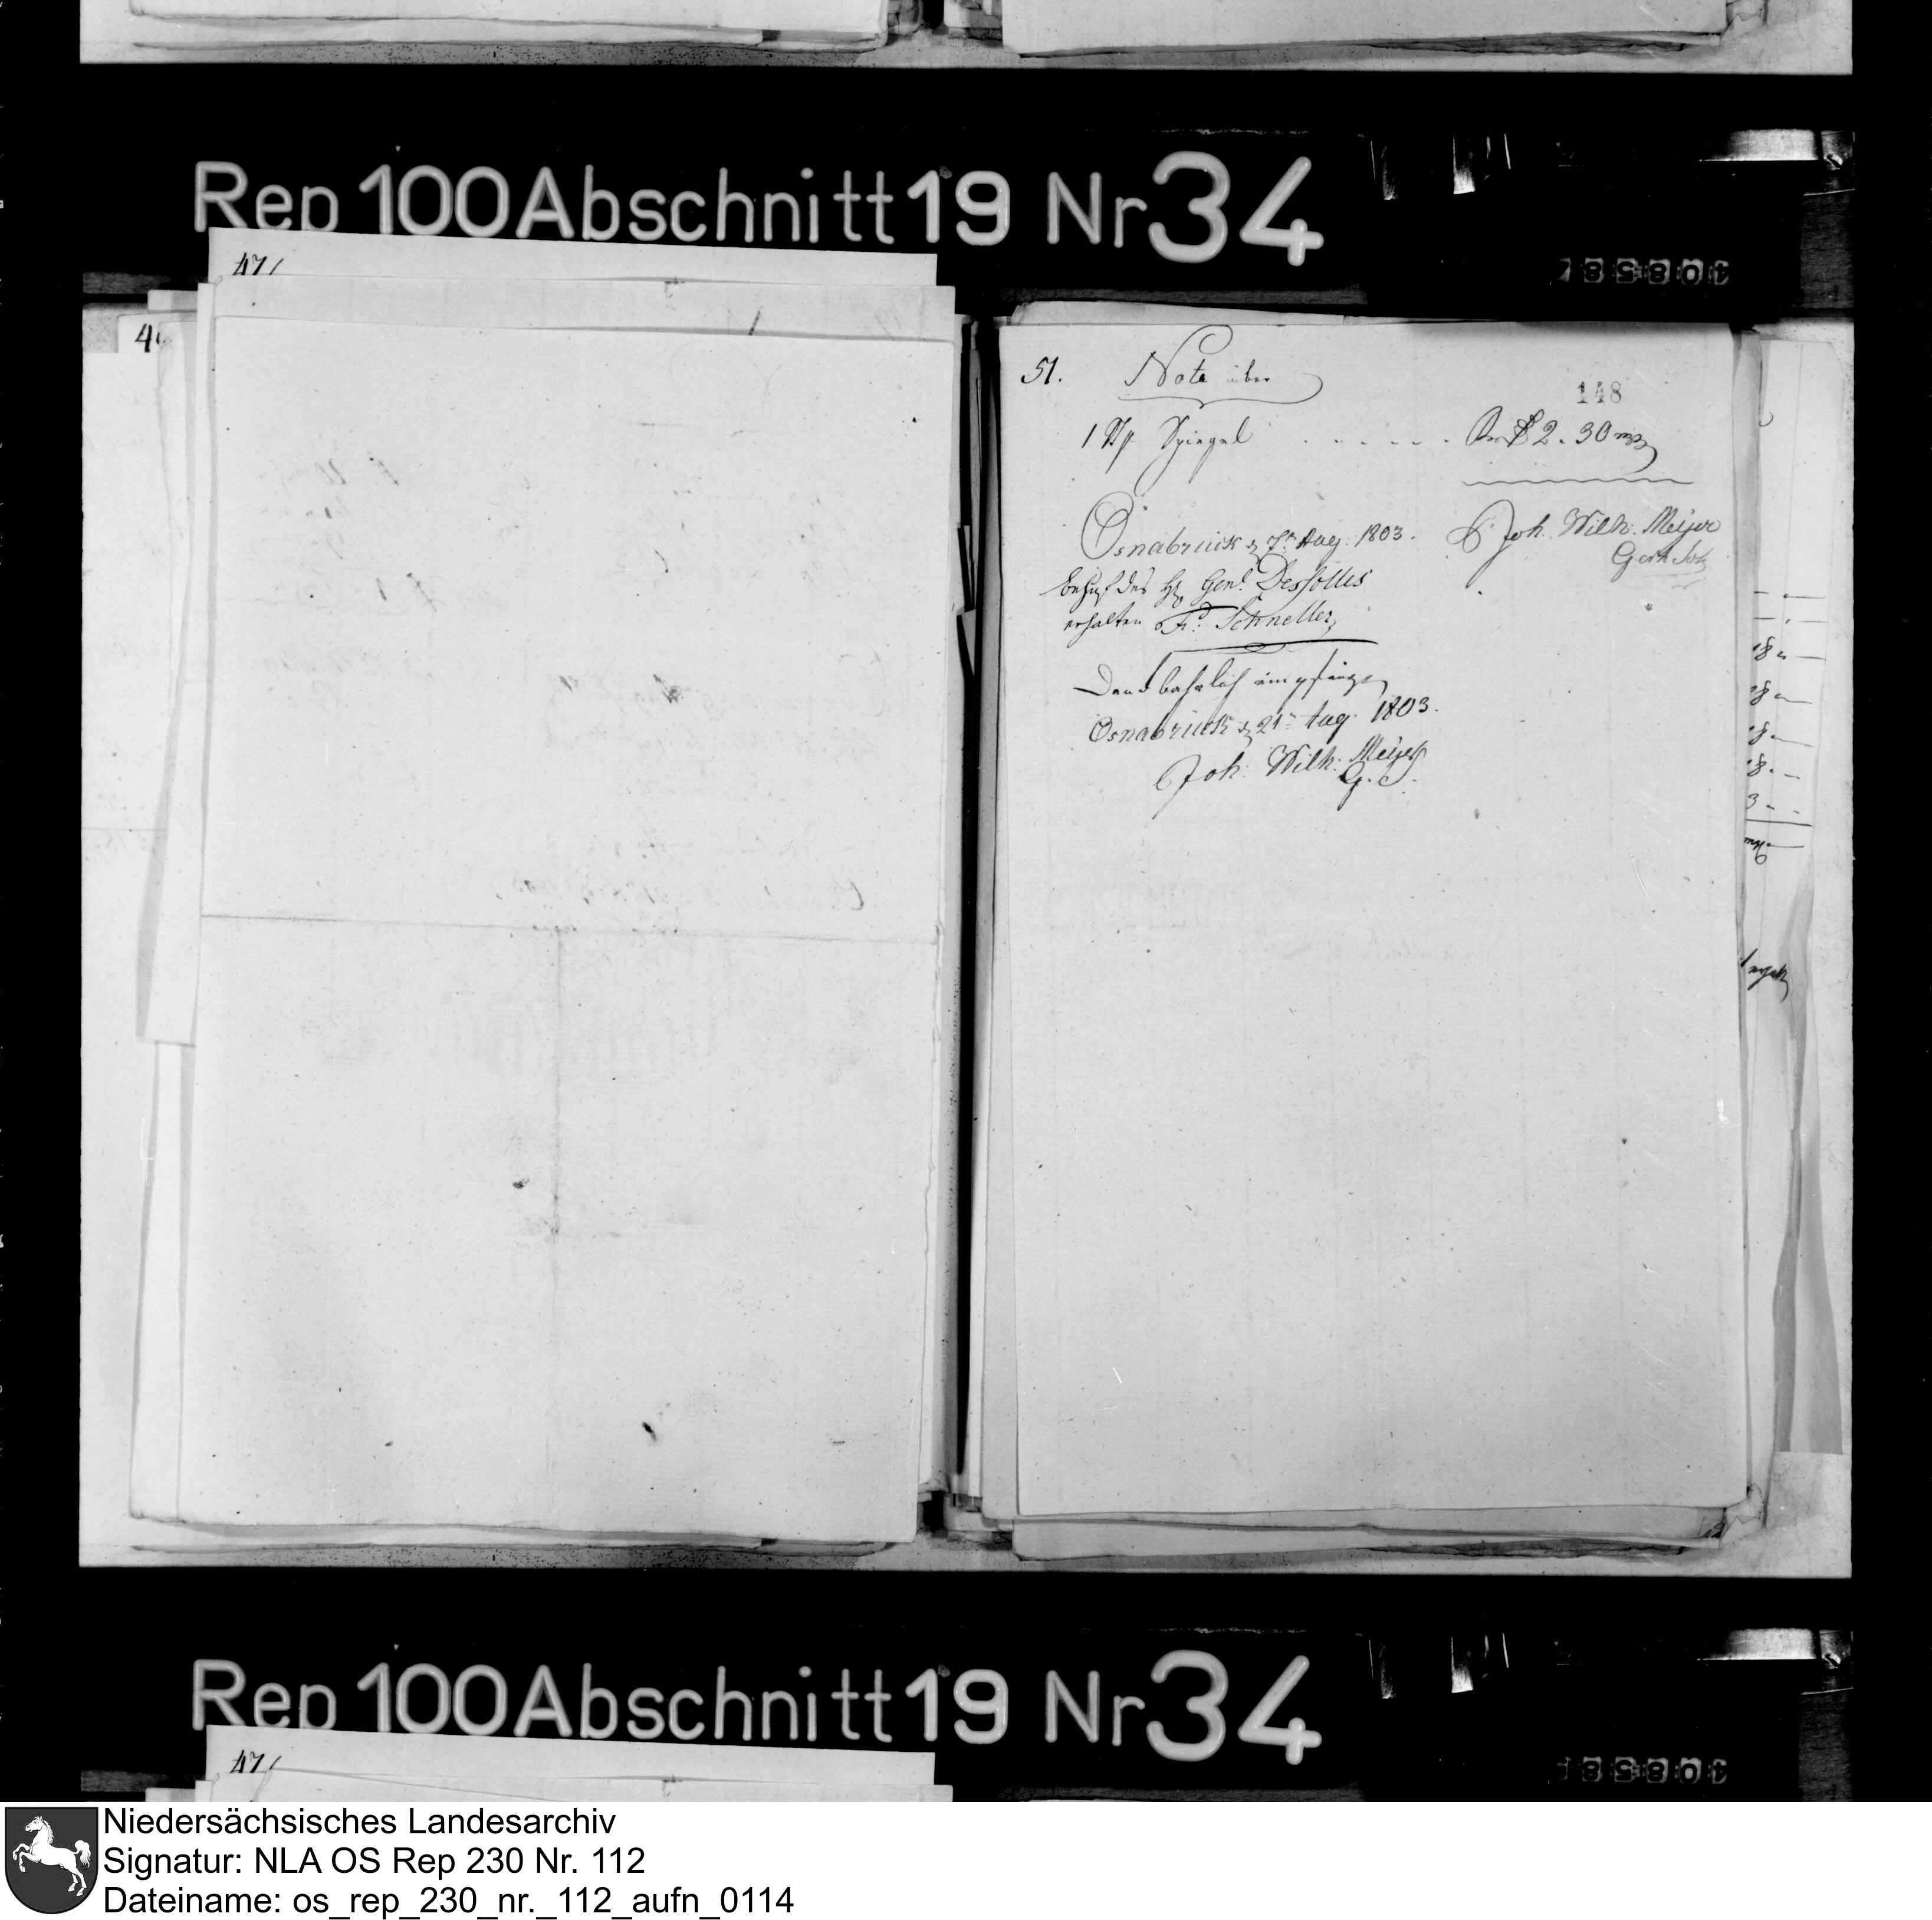 Rep 100 Abschnitt 19 Nr 34
47
51.
Note über
148
1 Spiegel . . . . . . 2. 30
Osnabrück d 7n Aug: 1803.
Joh. Wilh: Meijer
Gerh Soh
behuf des H Genl Dessolles
erhalten Fr: Schneller
bahrlich empfangen
Osnabrück d 21n Aug. 1803.
Joh: Wilh: Meijer
G. S.
Rep 100 Abschnitt 19 Nr 34
47
Niedersächsisches Landesarchiv
Signatur: NLA OS Rep 230 Nr. 112
Dateiname: os_rep_230_nr._112_aufn_0114